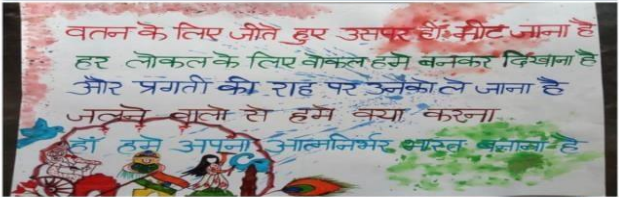 वतन के लिए जीते हुए उसपर ही मीट जाना है
हर लोकल के लिए वोकल हमे बनकर दिखाना है
और प्रगती की राह पर उनको ले जाना है
जलने वालो से हमे क्या करना
हाँ हमे अपना आत्मनिर्भर भारत बनाना है